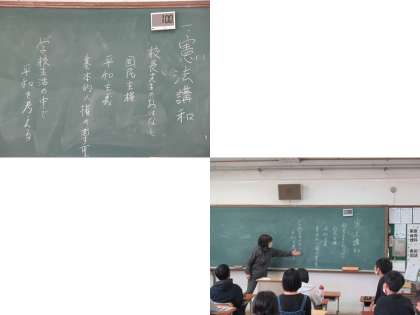 一憲法講和
校長先生のおはなし
国民主権
平和主義
基本的人権の尊重
学校生活の中で
平和を考える